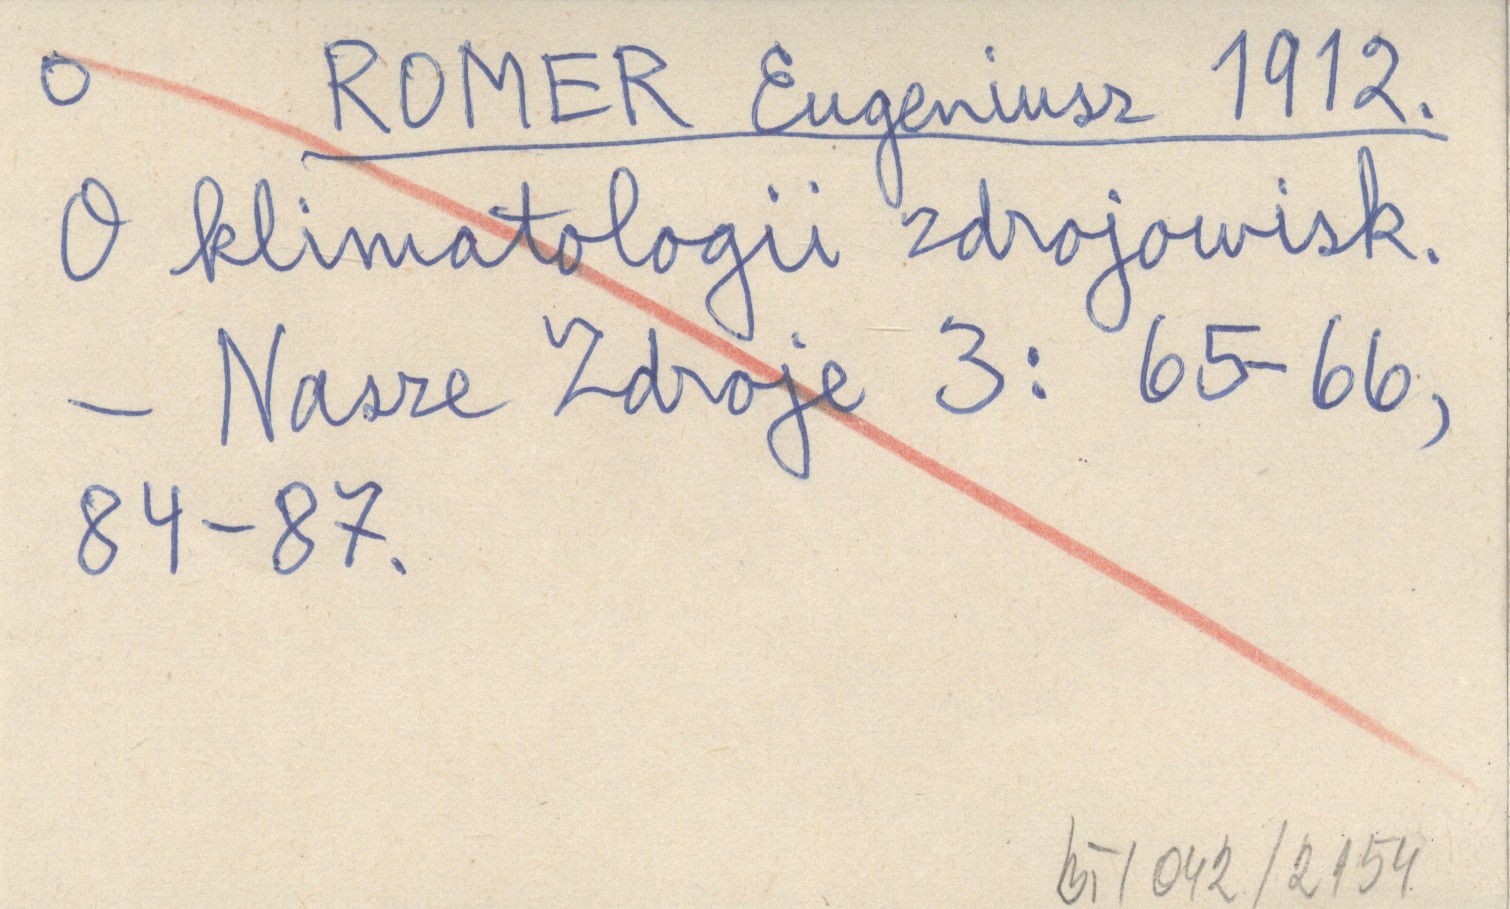 O ROMER Eugeniusz 1912.
O klimatologii zdrojowisk.
– Nasze Zdroje 3: 65-66,
84-87.
042/2154